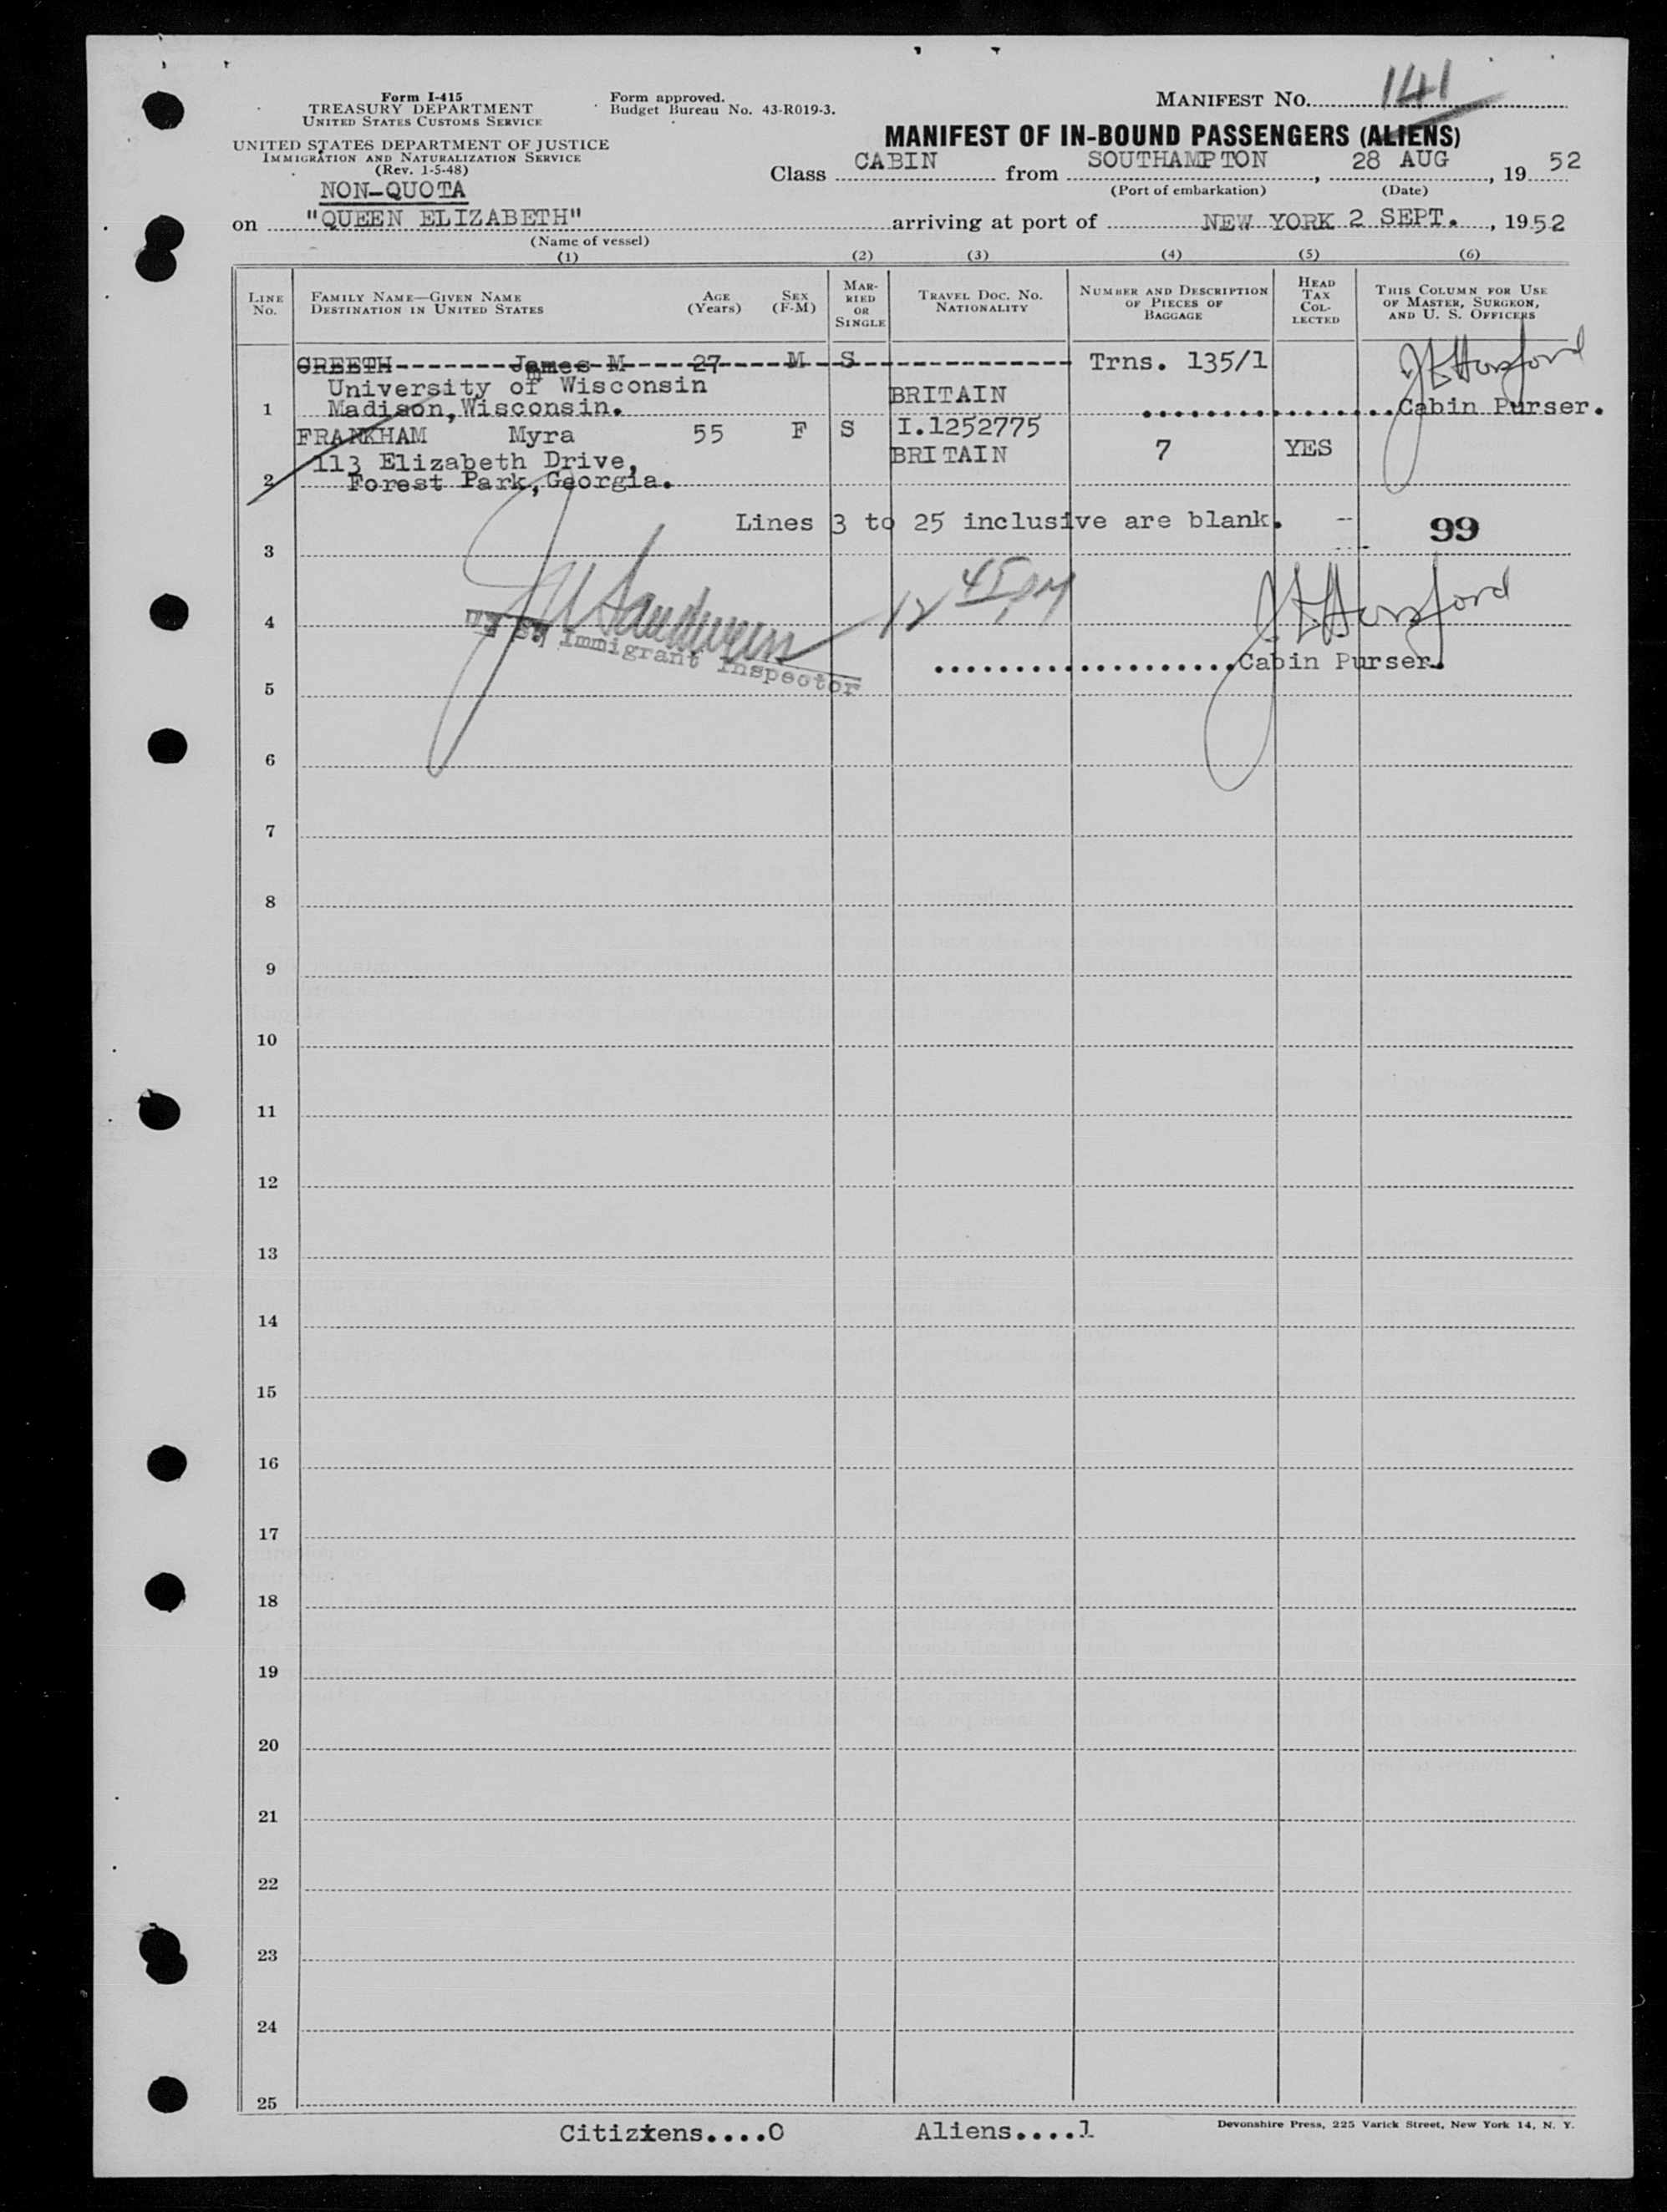 Form I-415
TREASURY DEPARTMENT
UNITED STATES CUSTOMS SERVICE
UNITED STATES DEPARTMENT OF JUSTICE
IMMIGRATION AND NATURALIZATION SERVICE
(Rev. 1-5-48)
Form approved.
Budget Bureau No. 43-R019-3.
MANIFEST NO. 141
MANIFEST OF IN-BOUND PASSENGERS (ALIENS)
Class CABIN from SOUTHAMPTON, 28 AUG, 1952
(Port of embarkation) (Date)
NON-QUOTA
on "QUEEN ELIZABETH" arriving at port of NEW YORK 2 SEPT., 1952
(Name of vessel)
(1) (2) (3) (4) (5) (6)
LINE NO.
FAMILY NAME—GIVEN NAME
DESTINATION IN UNITED STATES
AGE (Years)
SEX (F-M)
MARRIED OR SINGLE
TRAVEL DOC. NO.
NATIONALITY
NUMBER AND DESCRIPTION OF PIECES OF BAGGAGE
HEAD TAX COLLECTED
THIS COLUMN FOR USE OF MASTER, SURGEON, AND U. S. OFFICERS
GREETH-------James-M----27----M--S------------- Trns. 135/1
University of Wisconsin BRITAIN
1 Madison,Wisconsin. ................Cabin Purser.
FRANKHAM Myra 55 F S I.1252775
113 Elizabeth Drive, BRITAIN 7 YES
2 Forest Park,Georgia.
Lines 3 to 25 inclusive are blank. -- 99
3
12 45 PM
4
U. S. Immigrant Inspector
...................Cabin Purser.
5
6
7
8
9
10
11
12
13
14
15
16
17
18
19
20
21
22
23
24
25
Citizxens....0 Aliens....1
Devonshire Press, 225 Varick Street, New York 14, N. Y.